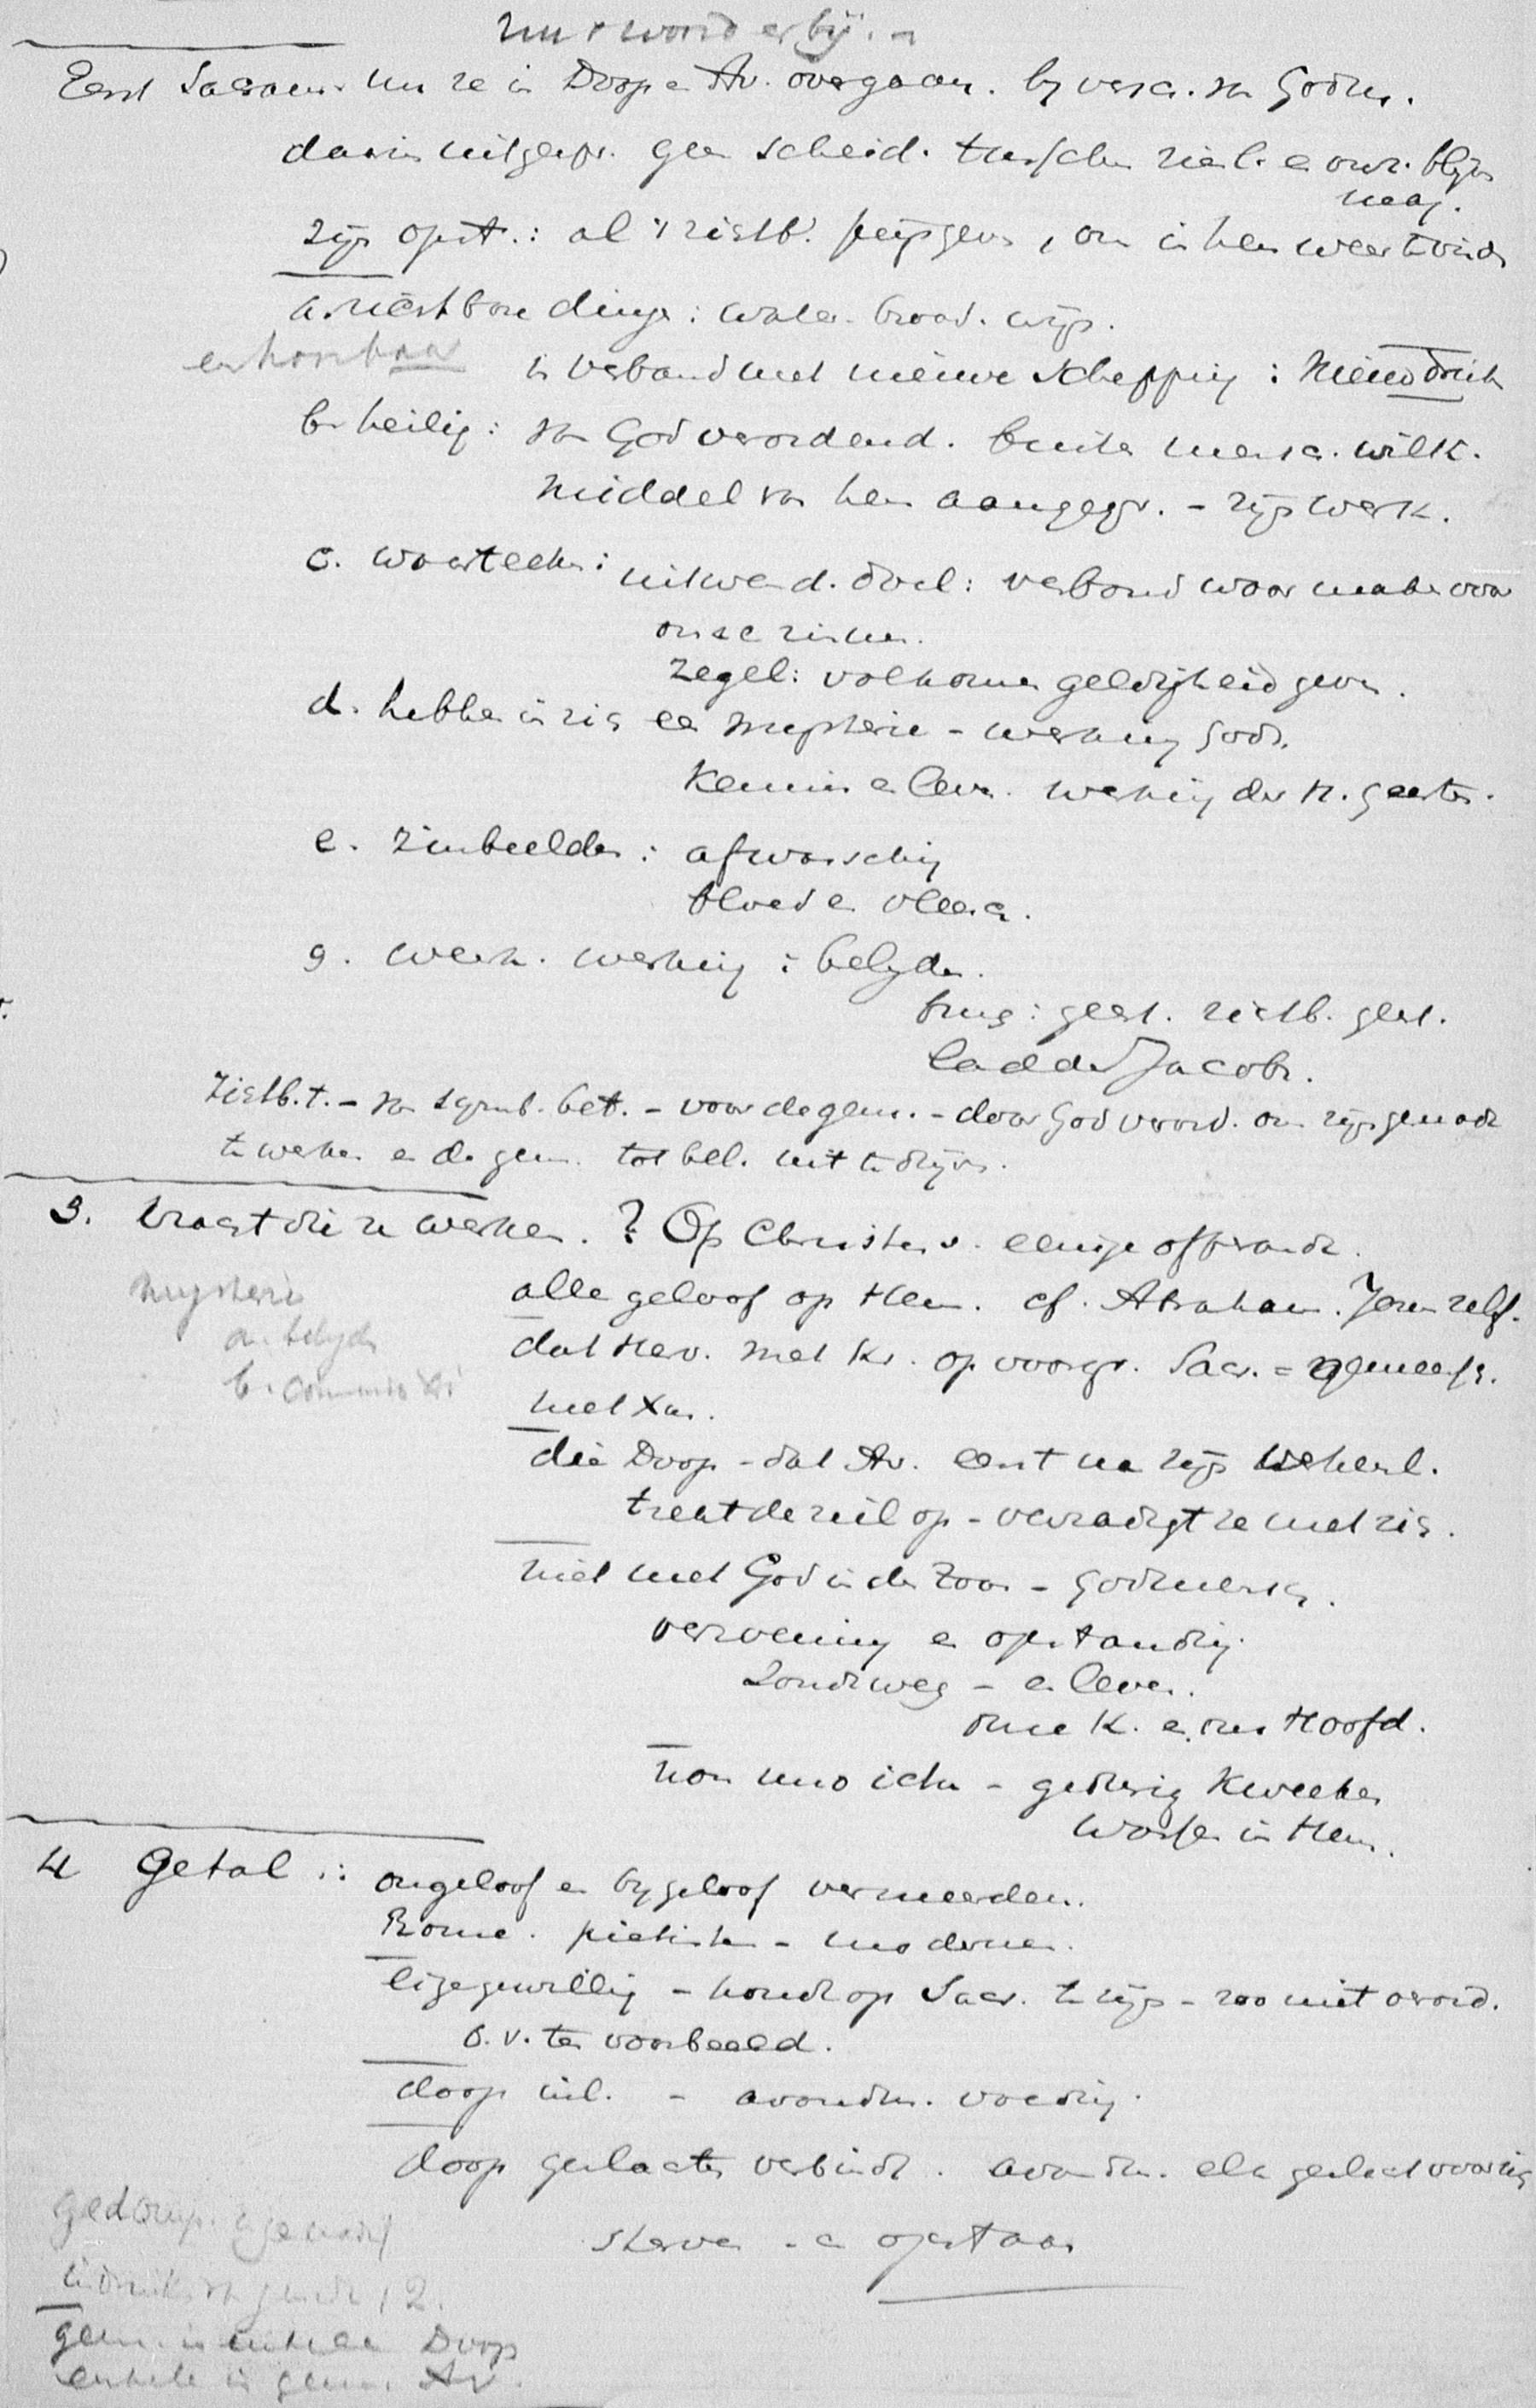 woord erbij.
Eerst Sacram. nu ze in Doop e Av. overgaan. by versch. van Godsd.
daarin uitgespr. geen scheid. tusschen ziel. e onz. blijven
mag.
zijn opst.: al 't zichtb. prijsgeven, om in hem weer te vinden
a. zichtbare dingen: water. brood. wijn.
en hoorbaar
in verband met nieuwe schepping: Nieuw drink
b. heilig: van God verordend. buiten mensch. willk.
middel van hem aangegr. - zijn werk.
c. waarteeken: uitwend. doel: verbond waar maken voor
onze zinnen.
zegel: volkomen geldigheid geven.
d. hebben in zich een mysterie - werking Gods.
Kennis e leven. werking des H. Geestes.
e. zinbeelden: afwassching
bloed e vleesch.
g. werk. werking: belyden.
brug: geest. zichtb. geest.
ladder Jacobs.
Zichtb. t. - van symb. bet. - voor de gem. - door God verord. om zijn genade
te werken e de gem. tot bel. uit te drijven.
3. kracht die ze werken. ? Op Christus v. eenige offerande.
mysterie
alle geloof op Hem. cf. Abraham. Jezus zelf.
a. belyden
dat Herv. met Kr. op voorgr. Sacr. = gemeensch.
b. communio Xi
met Xus.
die Doop - dat Av. eerst na zijn
treedt de ziel op - vereenigt ze met zich.
niet met God in den Zoon - Godmensch.
verzoening e opstanding.
Zonde weg - e leven.
onze K. e ons Hoofd.
non uno ictu - gedurig kweeken
wassen in Hem.
4 Getal: ongeloof e bygeloof vermeerderen.
Rome. pietisten - modernen.
eigenwillig - houdt op Sacr. te zijn - zoo niet verord.
b.v. ten voorbeeld.
doop inl. - avondm. voeding.
doop geslachten verbindt. avondm. elk geslacht voor zich
sterven - e opstaan
gem. in enkelen Doop
enkele in gem. Av.